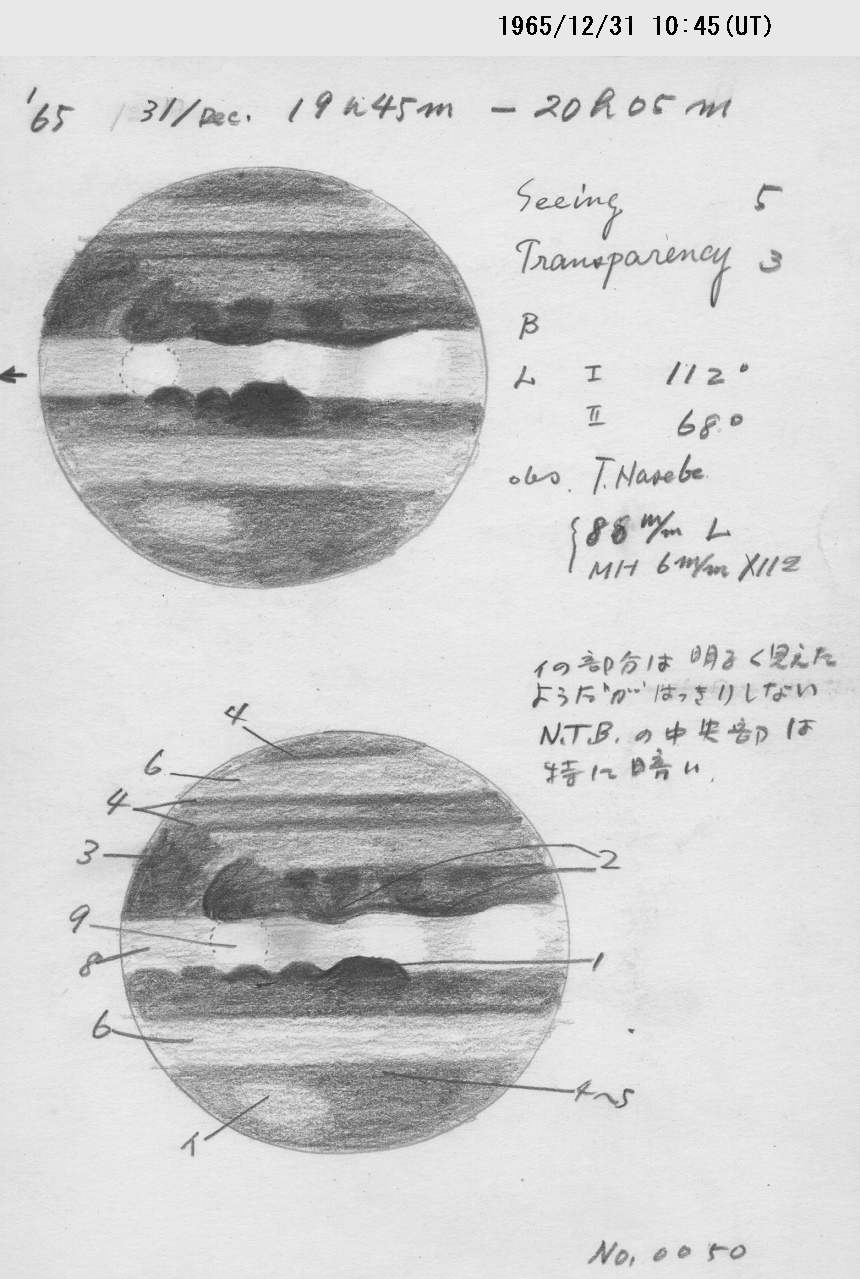 1965/12/31 10:45(UT)
'65 31/Dec. 19h45m - 20h05m
Seeing 5
Transparency 3
B
L I 112°
II 68°
obs. T. Nasebe
88 m/m L
MH 6m/m X112
イの部分は明るく見えた
ようだがはっきりしない
N.T.B.の中央部は
特に暗い.
4
6
4
3
2
9
8
1
6
4~5
イ
No. 0050